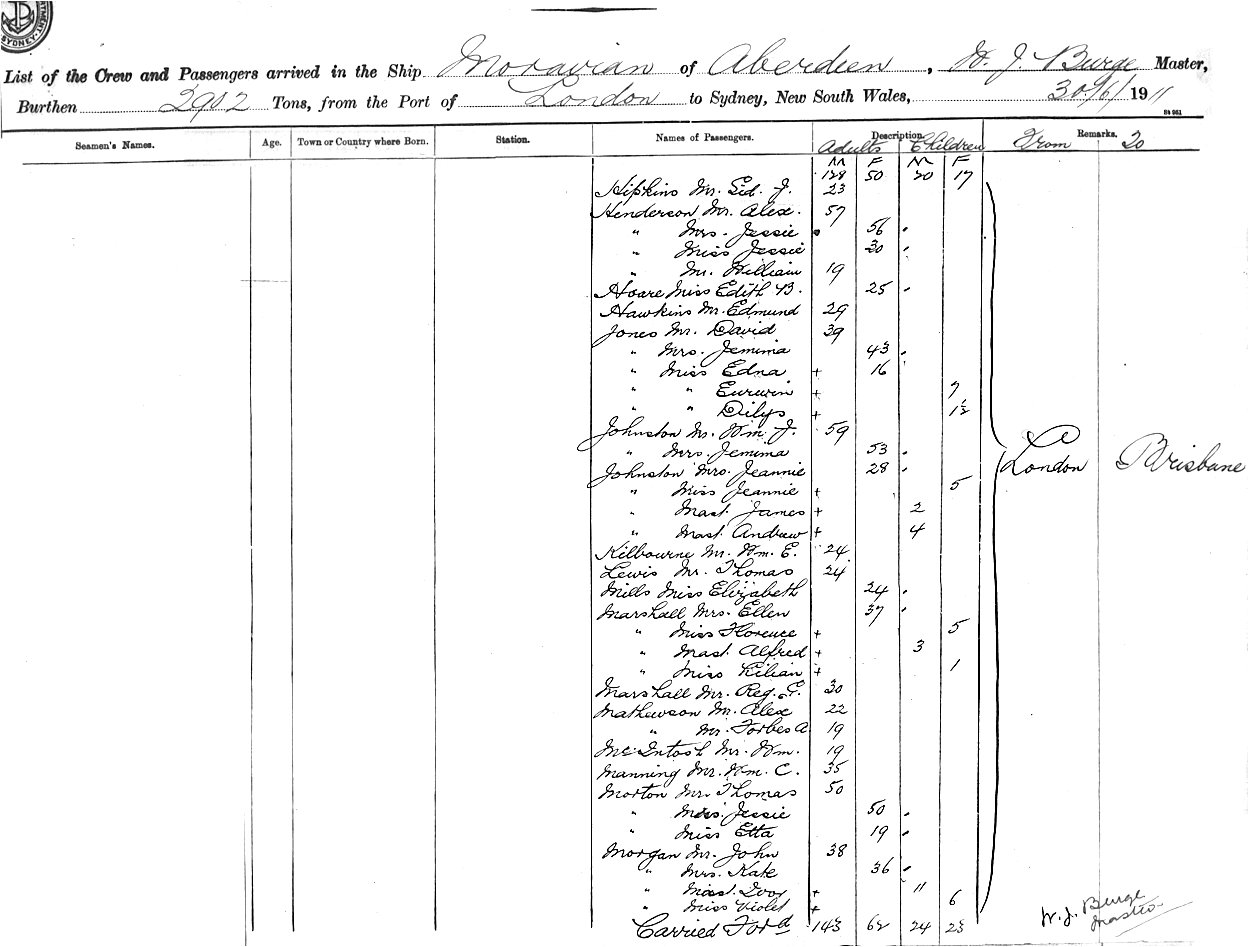 DEPARTMENT. SYDNEY.
List of the Crew and Passengers arrived in the Ship Moravian of Aberdeen, W. J. Burge Master,
Burthen 2902 Tons, from the Port of London to Sydney, New South Wales, 30/6/1911
St 951
Seamen's Names. Age. Town or Country where Born. Station. Names of Passengers. Description. Remarks.
Adults Children From To
M F M F
128 50 20 17
Hipkins Mr. Sid. J. 23
Henderson Mr. Alex. 57
" Mrs. Jessie 56
" Miss Jessie 30
" Mr. William 19
Hoare Miss Edith B. 25
Hawkins Mr. Edmund 29
Jones Mr. David 39
" Mrs. Jemima 43
" Miss Edna + 16
" " Eurwin + 7
" " Dilys + 1½
Johnston Mr. Wm. J. 59
" Mrs. Jemima 53
Johnston Mrs. Jeannie 28
London Brisbane
" Miss Jeannie + 5
" Mast. James + 2
" Mast. Andrew + 4
Kilbourne Mr. Wm. E. 24
Lewis Mr. Thomas 24
Mills Miss Elizabeth 24
Marshall Mrs. Ellen 37
" Miss Florence + 5
" Mast. Alfred + 3
" Miss Lilian + 1
Marshall Mr. Reg. G. 30
Mathewson Mr. Alex 22
" Mr. Forbes A. 19
McIntosh Mr. Wm. 19
Manning Mr. Wm. C. 35
Morton Mr. Thomas 50
" Mrs. Jessie 50
" Miss Etta 19
Morgan Mr. John 38
" Mrs. Kate 36
" Mast. Ivor + 11
" Miss Violet + 6
Carried Ford 143 62 24 23
W. J. Burge
Master